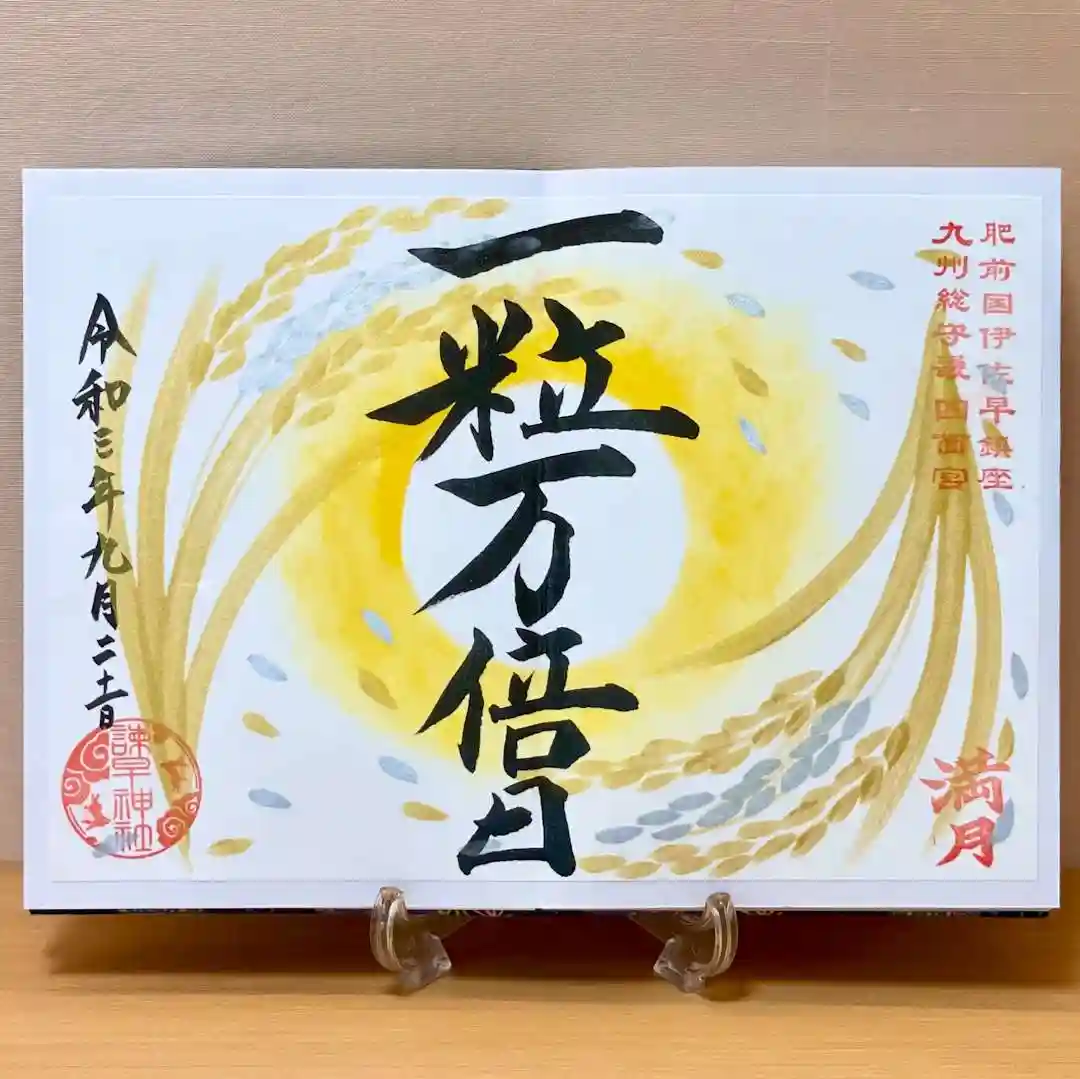 肥前国伊佐早鎮座
九州総守護四面宮
一粒万倍日
満月
令和三年九月二十一日
諫早神社